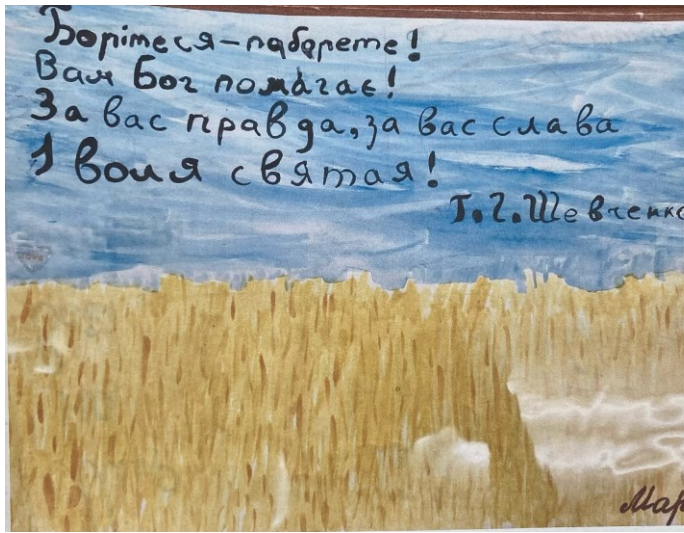 Борітеся - поборете!
Вам Бог помагає!
За вас правда, за вас слава
І воля святая!
Т. Г. Шевченко
Мар